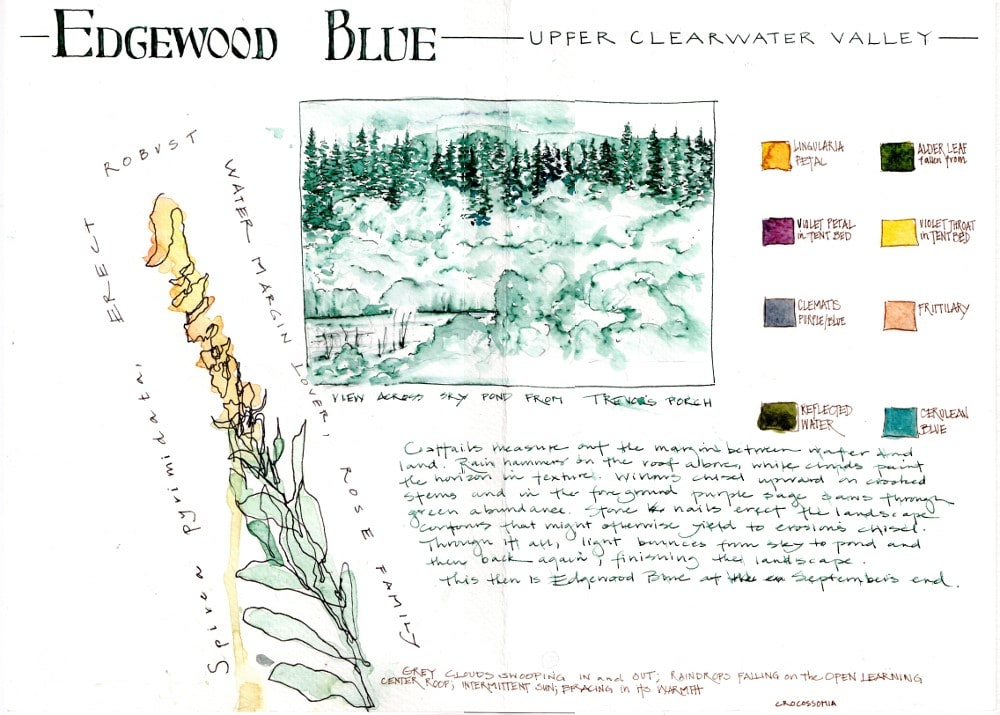 EDGEWOOD BLUE
UPPER CLEARWATER VALLEY
ERECT ROBUST
WATER MARGIN LOVER!
ROSE FAMILY
Spirea pyrimidata!
VIEW ACROSS SKY POND FROM TREVOR'S PORCH
LINGULARIA
PETAL
ALDER LEAF
fallen from
VIOLET PETAL
in TENT BED
VIOLET THROAT
in TENT BED
CLEMATIS
PURPLE/BLUE
FRITTILARY
REFLECTED
WATER
CERULEAN
BLUE
Cattails measure out the margin between water and
land. Rain hammers on the roof above, while clouds paint
the horizon in texture. Willows chisel upward on crooked
stems and in the foreground purple sage saws through
green abundance. Stone nails erect the landscape
contours that might otherwise yield to erosion's chisel.
Through it all, light bounces from sky to pond and
then back again, finishing the landscape.
This then is Edgewood Blue at September's end.
GREY CLOUDS SWOOPING IN and OUT; RAINDROPS FALLING on the OPEN LEARNING
CENTER ROOF; INTERMITTENT SUN; BRACING in its WARMTH
CROCOSSOMIA